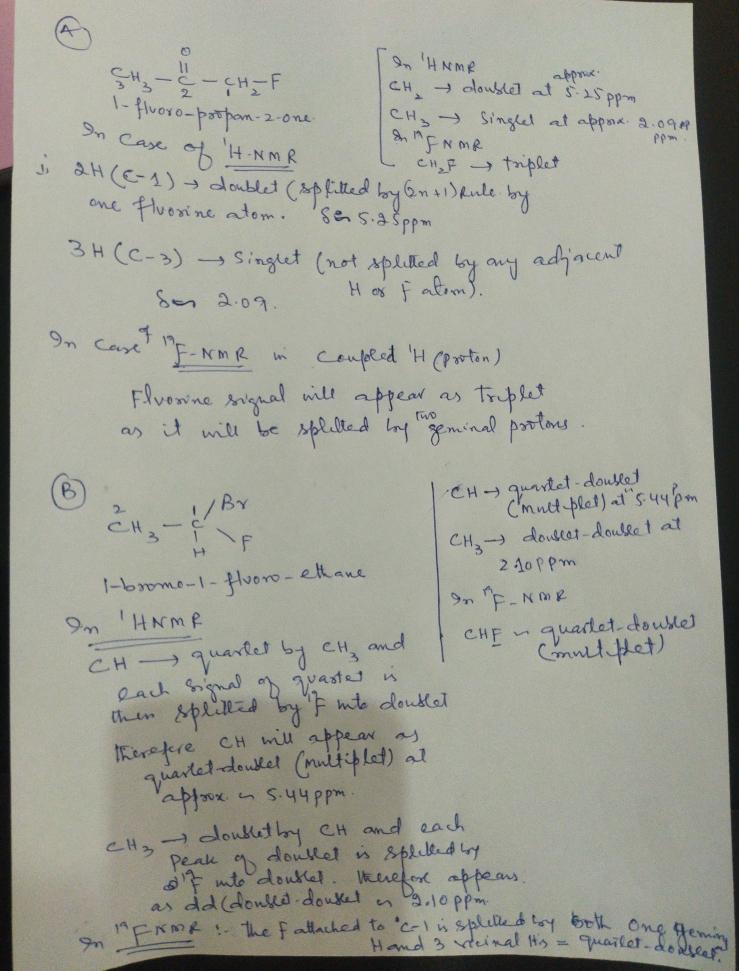 A
O
CH3 - C - CH2 - F
3 2 1
1-fluoro-propan-2-one.
In case of 1H-NMR
i, 2H (C-1) → doublet (splitted by (2n+1) Rule by
one fluorine atom. 5.25ppm
3H (C-3) → Singlet (not splitted by any adjacent
H or F atom).
2.09.
In case of 19F-NMR in coupled 1H (proton)
Fluorine signal will appear as triplet
as it will be splitted by two geminal protons.
In 1H NMR
CH2 → doublet at approx. 5.25 ppm
CH3 → Singlet at approx. 2.09 ppm.
In 19F NMR
CH2F → triplet
B
2 1 Br
CH3 - C
H F
1-bromo-1-fluoro-ethane
In 1HNMR
CH → quartet by CH3 and
each signal of quartet is
then splitted by 19F into doublet
therefore CH will appear as
quartet-doublet (multiplet) at
approx. 5.44 ppm.
CH3 → doublet by CH and each
peak of doublet is splitted by
19F into doublet. therefore appears
as dd (doublet-doublet 2.10 ppm.
In 19F NMR :- The F attached to C-1 is splitted by both one geminal
H and 3 vicinal H's = quartet-doublet.
CH → quartet-doublet
(multiplet) at 5.44 ppm
CH3 → doublet-doublet at
2.10 ppm
In 19F-NMR
CHF quartet-doublet
(multiplet)